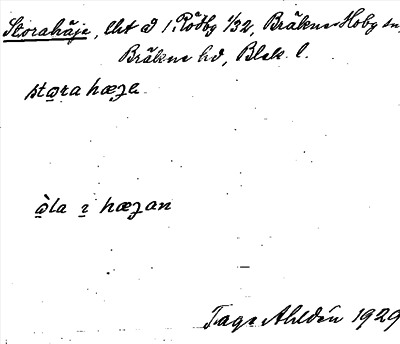 Storahäje, lht å 1. Rödby 1/32, Bräkne-Hoby sn,
Bräkne hd, Blek. l.
stora hæʒe
åla i hæʒan
Tage Ahldén 1929